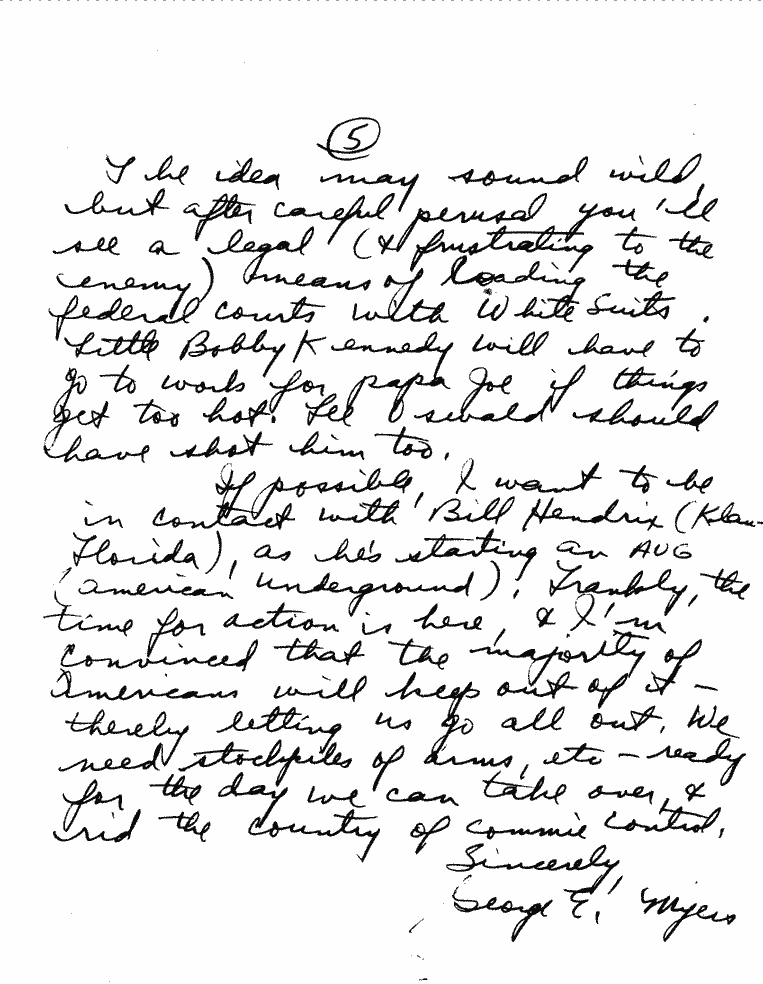 5
The idea may sound wild,
but after careful perusal you'll
see a legal (& frustrating to the
enemy) means of loading the
federal courts with White Suits.
Little Bobby Kennedy will have to
go to work for papa Joe if things
get too hot. Lee Oswald should
have shot him too.
If possible, I want to be
in contact with Bill Hendrix (Klan-
Florida), as he's starting an AUG
(American Underground). Frankly, the
time for action is here, & I'm
convinced that the majority of
Americans will keep out of it -
thereby letting us go all out. We
need stockpiles of arms, etc - ready
for the day we can take over, &
rid the country of commie control.
Sincerely,
George E. Myers